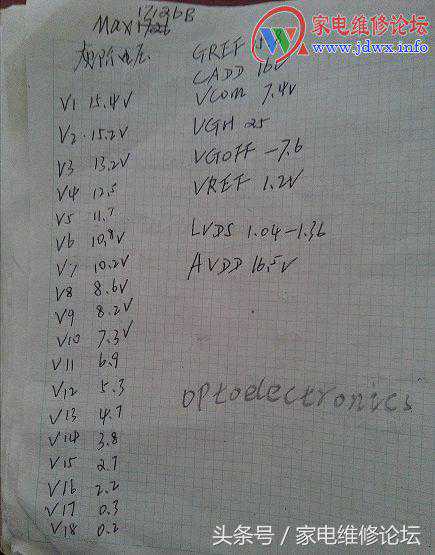 家电维修论坛
www.jdwx.info
Max
17126B
GREF
CADD 16V
VCOM 7.4V
VGH 25
VGOFF -7.6
VREF 1.2V
LVDS 1.04-1.36
AVDD 16.5V
V1 15.4V
V2 15.2V
V3 13.2V
V4 12.5
V5 11.7
V6 10.8V
V7 10.2V
V8 8.6V
V9 8.2V
V10 7.3V
V11 6.9
V12 5.3
V13 4.7
V14 3.8
V15 2.7
V16 2.2
V17 0.3
V18 0.2
optoelectronics
头条号 / 家电维修论坛